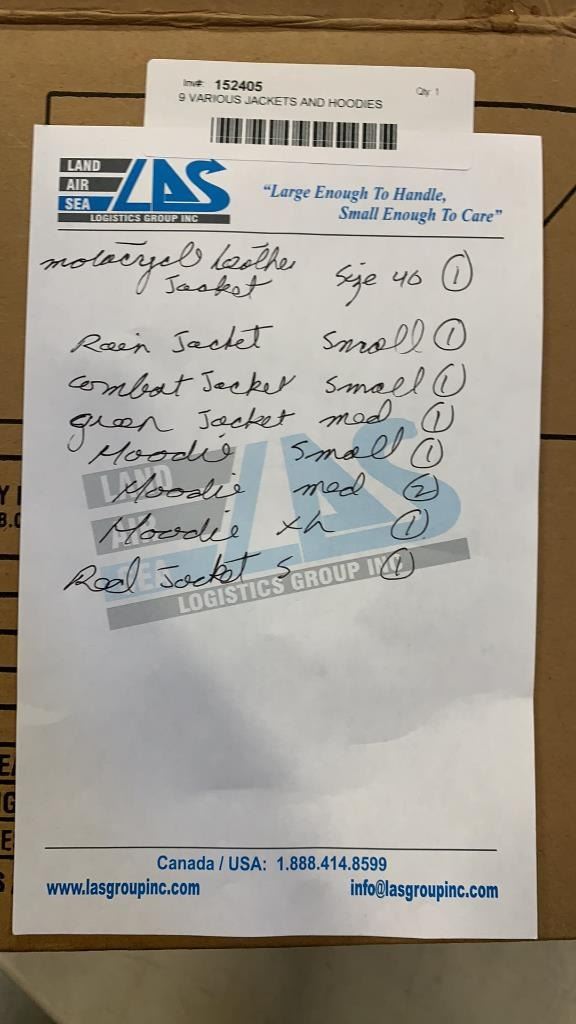 Inv#: 152405 Qty: 1
9 VARIOUS JACKETS AND HOODIES
LAND
AIR
SEA
LAS
LOGISTICS GROUP INC
"Large Enough To Handle,
Small Enough To Care"
motocrycle leather
Jacket Size 40 1
Rain Jacket Small 1
Combat Jacket Small 1
green Jacket med 1
Hoodie Small 1
Hoodie med 2
Hoodie 1
Red Jacket S 1
LAND
AIR
SEA
LAS
LOGISTICS GROUP INC
Canada / USA: 1.888.414.8599
www.lasgroupinc.com info@lasgroupinc.com